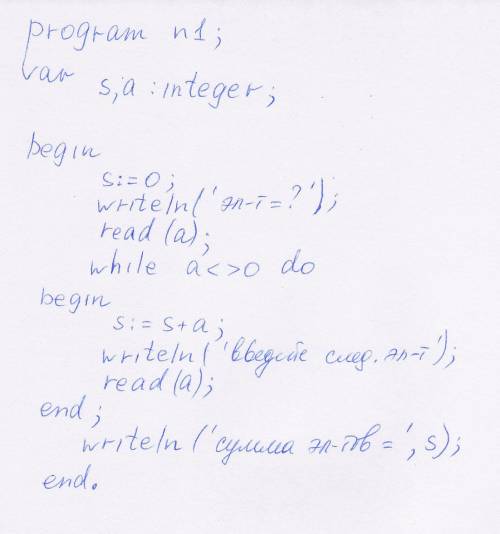 program n1;
var s,a : integer;
begin
s:=0;
writeln('эл-т=?');
read(a);
while a<>0 do
begin
s:=s+a;
writeln('введите след. эл-т');
read(a);
end;
writeln('сумма эл-тов=', s);
end.